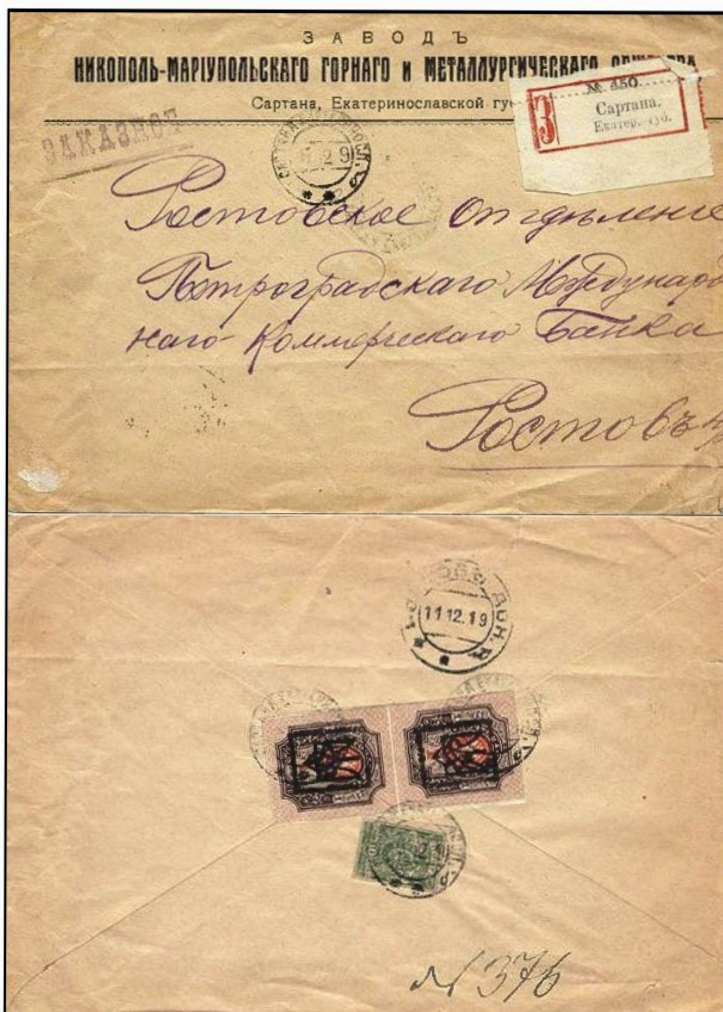 ЗАВОДЪ
НИКОПОЛЬ-МАРІУПОЛЬСКАГО ГОРНАГО и МЕТАЛЛУРГИЧЕСКАГО
Сартана, Екатеринославской
№ 450.
З
Сартана.
Екатер. губ.
ЗАКАЗНОЕ
Ростовское Отдѣленіе
Петроградскаго Международ
наго Коммерческаго Банка
Ростовъ
11 12.19
№ 376